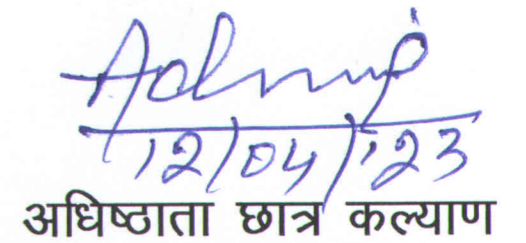 12/04/'23
अधिष्ठाता छात्र कल्याण